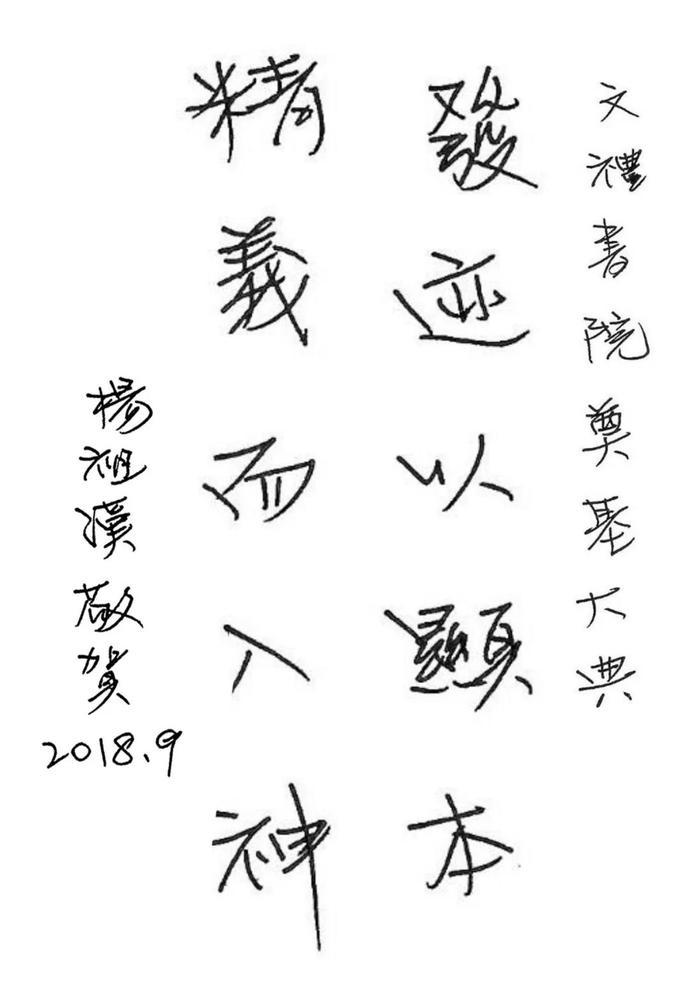 文禮書院奠基大典
發迹以顯本
精義而入神
楊祖漢敬賀
2018.9